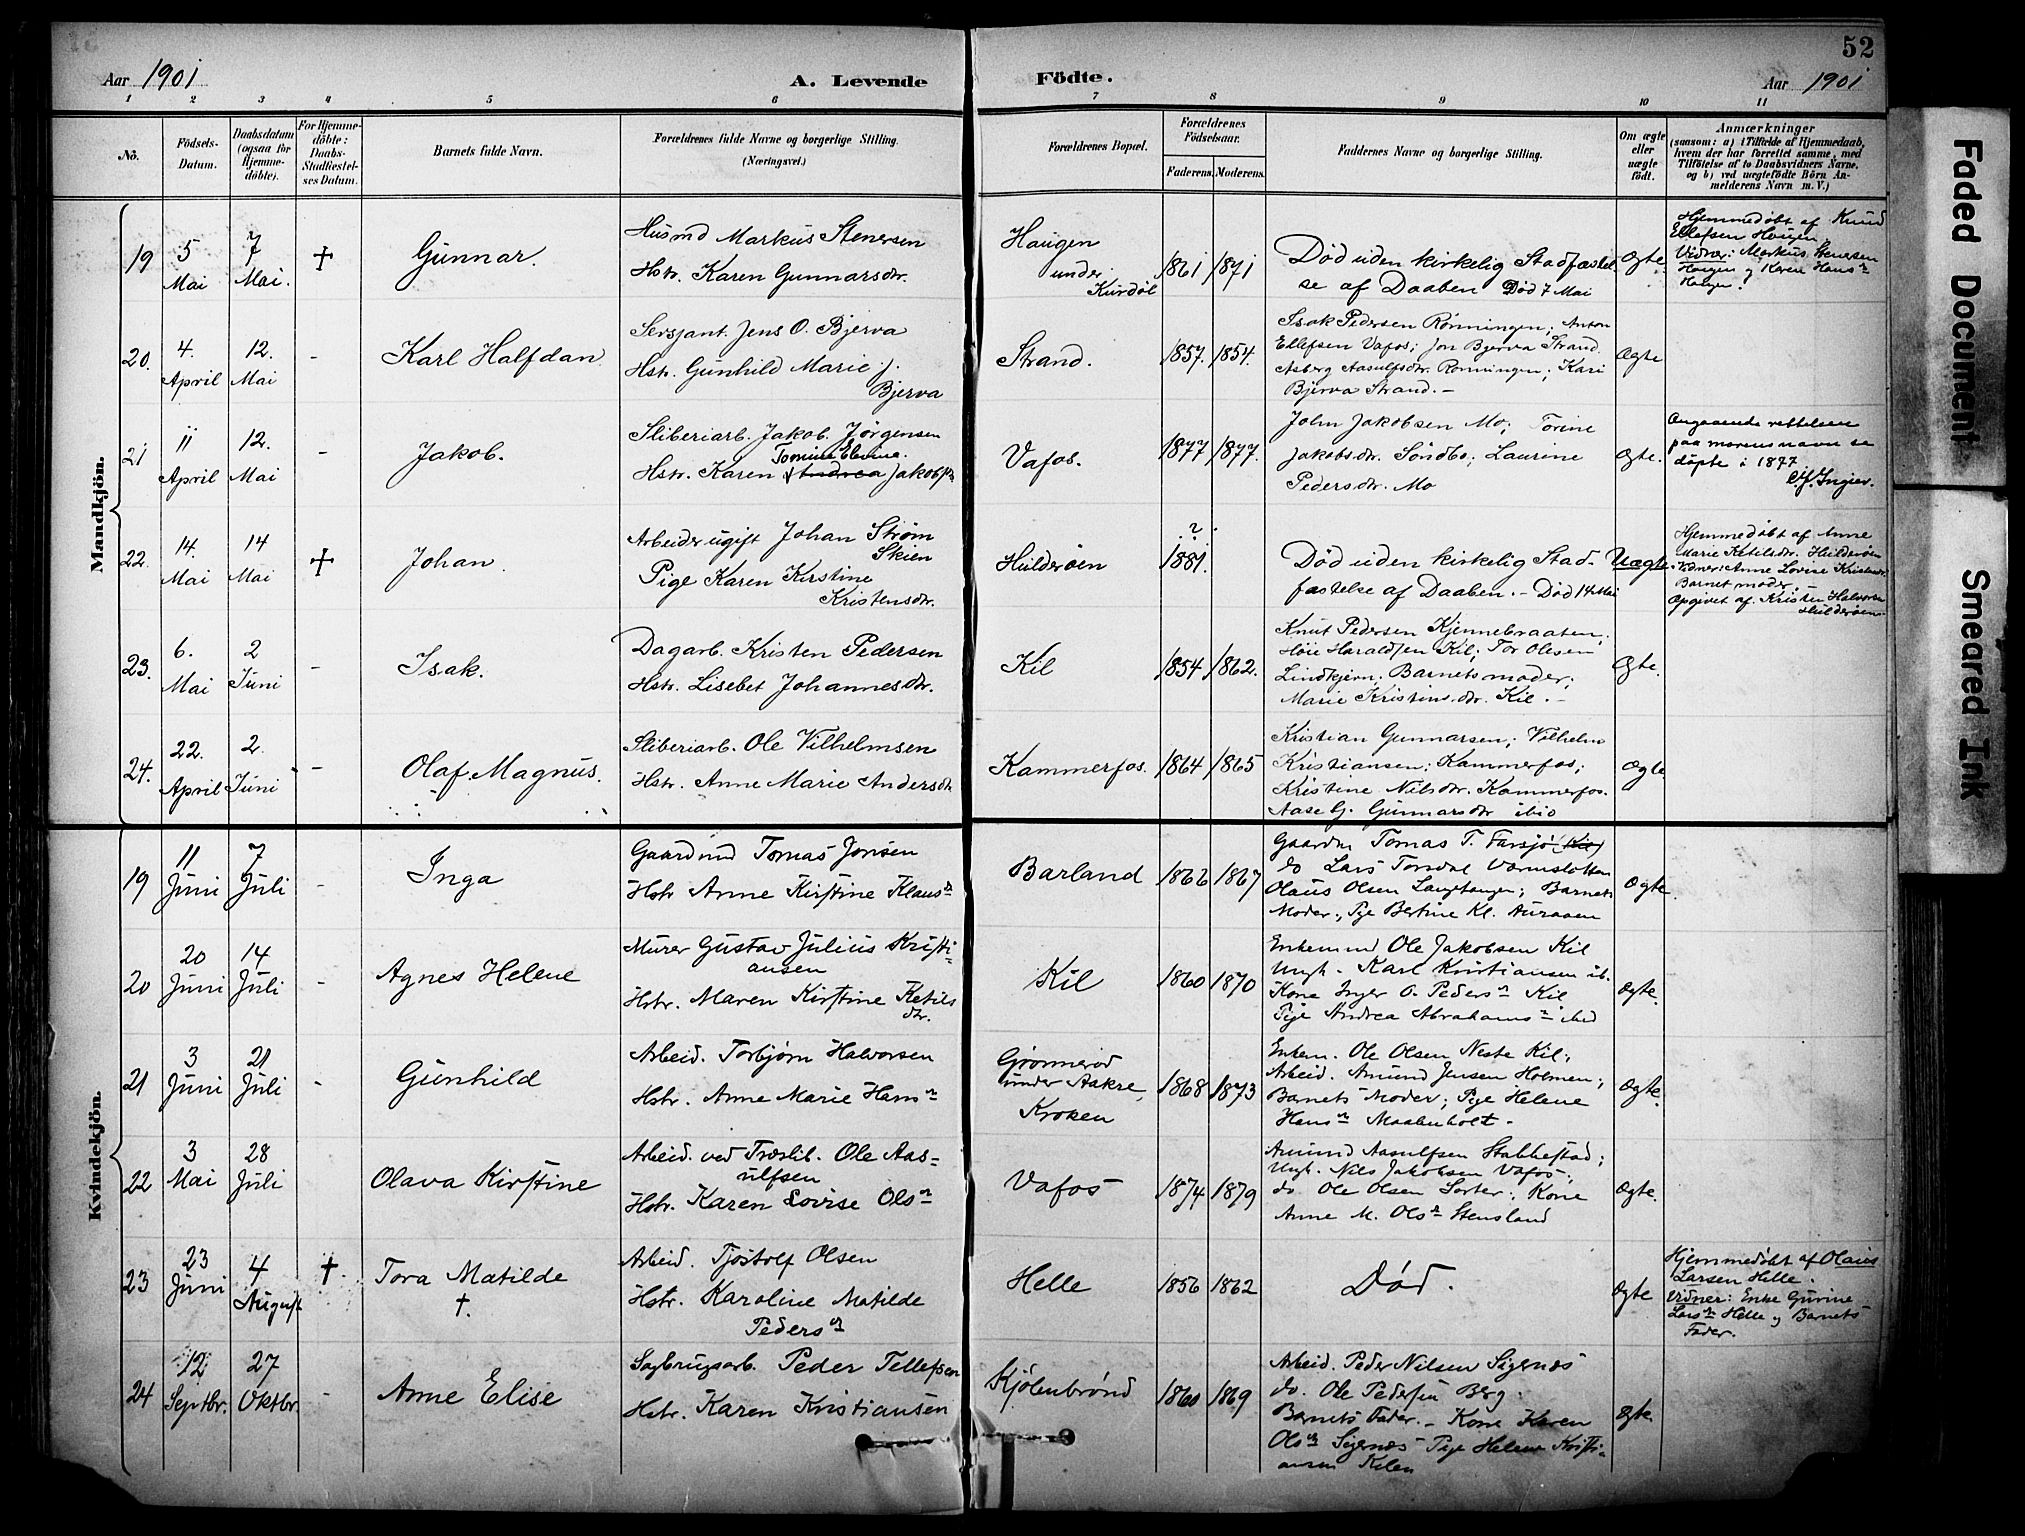 52
Aar 1901
A. Levende
Födte.
Aar 1901
1 2 3 4 5 6 7 8 9 10 11
No.
Födsels-Datum.
Daabsdatum (ogsaa for Hjemme-döbte).
For Hjemme-döbte: Daabs-Stadfæstel-ses Datum.
Barnets fulde Navn.
Forældrenes fulde Navne og borgerlige Stilling.
(Næringsvei.)
Forældrenes Bopæl.
Forældrenes Födselsaar.
Faderens. Moderens.
Faddernes Navne og borgerlige Stilling.
Om ægte eller uægte födt.
Anmærkninger
(saasom: a) i Tilfælde af Hjemmedaab, hvem der har forrettet samme, med Tilföielse af to Daabsvidners Navne, og b) ved uægtefödte Börn An-melderens Navn m. V.)
Mandkjön.
19
5 Mai
7 Mai.
+
Gunnar.
Husmd Markus Stenersen
Hstr. Karen Gunnarsdtr.
Haugen
under
Kurdöl
1861 1871
Død uden kirkelig Stadfæstel-
se af Daaben Død 7 Mai
Ægte
Hjemmedøbt af Knud
Ellefsen Haugen
Vidner: Markus Stenersen
Haugen og Karen Hans
Haugen.
20.
4. April
12. Mai
-
Karl Halfdan
Sersjant. Jens O. Bjerva
Hstr. Gunhild Marie J.
Bjerva
Strand.
1857. 1854.
Isak Pedersen Rønningen; Anton
Ellefsen Vafos; Jon Bjerva Strand.
Asborg Aasulfsdtr. Rønningen; Kari
Bjerva Strand. -
Ægte
21
11 April
12. Mai
-
Jakob.
Sliberiarb. Jakob Jörgensen
Tomine Elvine.
Hstr. Karen Andrea Jakobs
Vafos.
1877 1877.
John Jakobsen Mo; Torine
Jakobsdtr. Söndbo; Laurine
Pedersdtr. Mo
Ægte.
Angaaende rettelsen
paa morens navn se
døpte i 1877
Ingier.
22.
14. Mai
14 Mai
+
Johan.
Arbeider ugift Johan Strøm
Skien
Pige Karen Kirstine
Kristensdtr.
Hulderöen
? 1881.
Død uden kirkelig Stad-
fæstelse af Daaben. - Død 14 Mai
Uægte.
Hjemmedøbt af Anne
Marie Ketilsdtr. Hulderöen
Vidner: Anne Lovise Kristensdtr.
Barnet moder. -
Opgivet af Kristen Halvorsen
Hulderöen
23.
6. Mai
2 Juni
-
Isak.
Dagarb. Kristen Pedersen
Hstr. Lisebet Johannesdtr.
Kil
1854 1862.
Knut Pedersen Kjennebraaten;
Höie Haraldsen Kil; Tor Olesen
Lindkjern; Barnets moder;
Marie Kristensdtr. Kil. -
Ægte.
24.
22. April
2. Juni
-
Olaf Magnus.
Sliberiarb. Ole Vilhelmsen
Hstr. Anne Marie Andersdtr
Kammerfos.
1864 1865
Kristian Gunnarsen; Vilhelm
Kristiansen; Kammerfos;
Kristine Nilsdtr. Kammerfos.
Aase G. Gunnarsdtr ibid
Ægte
Kvindekjön.
19
11 Juni
7 Juli
-
Inga
Gaardmd Tomas Jonsen
Hstr Anne Kirstine Klaus
Barland
1862 1867
Gaardm Tomas T. Farsjø (Kil)
do Lars Torsdal
Olaus Olsen Langtangen; Barnets
Moder; Pige Bertine Kl. Auraaen
Ægte.
20
20 Juni
14 Juli
-
Agnes Helene
Murer Gustav Julius Kristi-
ansen
Hstr. Maren Kirstine Ketils
dtr.
Kil
1860 1870
Enkemnd Ole Jakobsen Kil
Ungk. Karl Kristiansen ib.
Kone Inger O. Peders Kil
Pige Andrea Abrahams ibid
Ægte.
21
3 Juni
21 Juli
-
Gunhild
Arbeid. Torbjørn Halvorsen
Hstr. Anne Marie Hans
Grønnerød
under Aakre,
Kroken
1868 1873
Enkem. Ole Olsen Neste Kil;
Arbeid. Amund Jensen Holmen;
Barnets Moder; Pige Helene
Hans Maabuholt -
Ægte.
22
3 Mai
28 Juli
Olava Kirstine
Arbeid. ved Træslib. Ole Aas-
ulfsen
Hstr. Karen Lovise Ols
Vafos
1874 1879
Amund Aasulfsen Stabbestad;
Ungk. Nils Jakobsen Vafos;
do. Ole Olsen Sorter; Kone
Anne M. Ols Stensland
Ægte.
23
23 Juni
4 August
†
Tora Matilde
†.
Arbeid. Tjostolf Olsen
Hstr. Karoline Matilde
Peders
Helle
1856 1862
Død.
Ægte
Hjemmedøbt af Olaus
Larsen Helle.
Vidner: Enke Gurine
Lars Helle og Barnets
Fader.
24
12 Septbr.
27 Oktbr.
-
Anne Elise
Sagbrugsarb. Peder Tellefsen
Hstr. Karen Kristiansen
Kjølebrønd
1860 1869
Arbeid. Peder Nilsen Sigernæs
do. Ole Pedersen Berg.
Barnets Fader. - Kone Karen
Ols Sigernæs Pige Helene Kristi-
ansen Kilen
Ægte
Faded Document
Smeared Ink